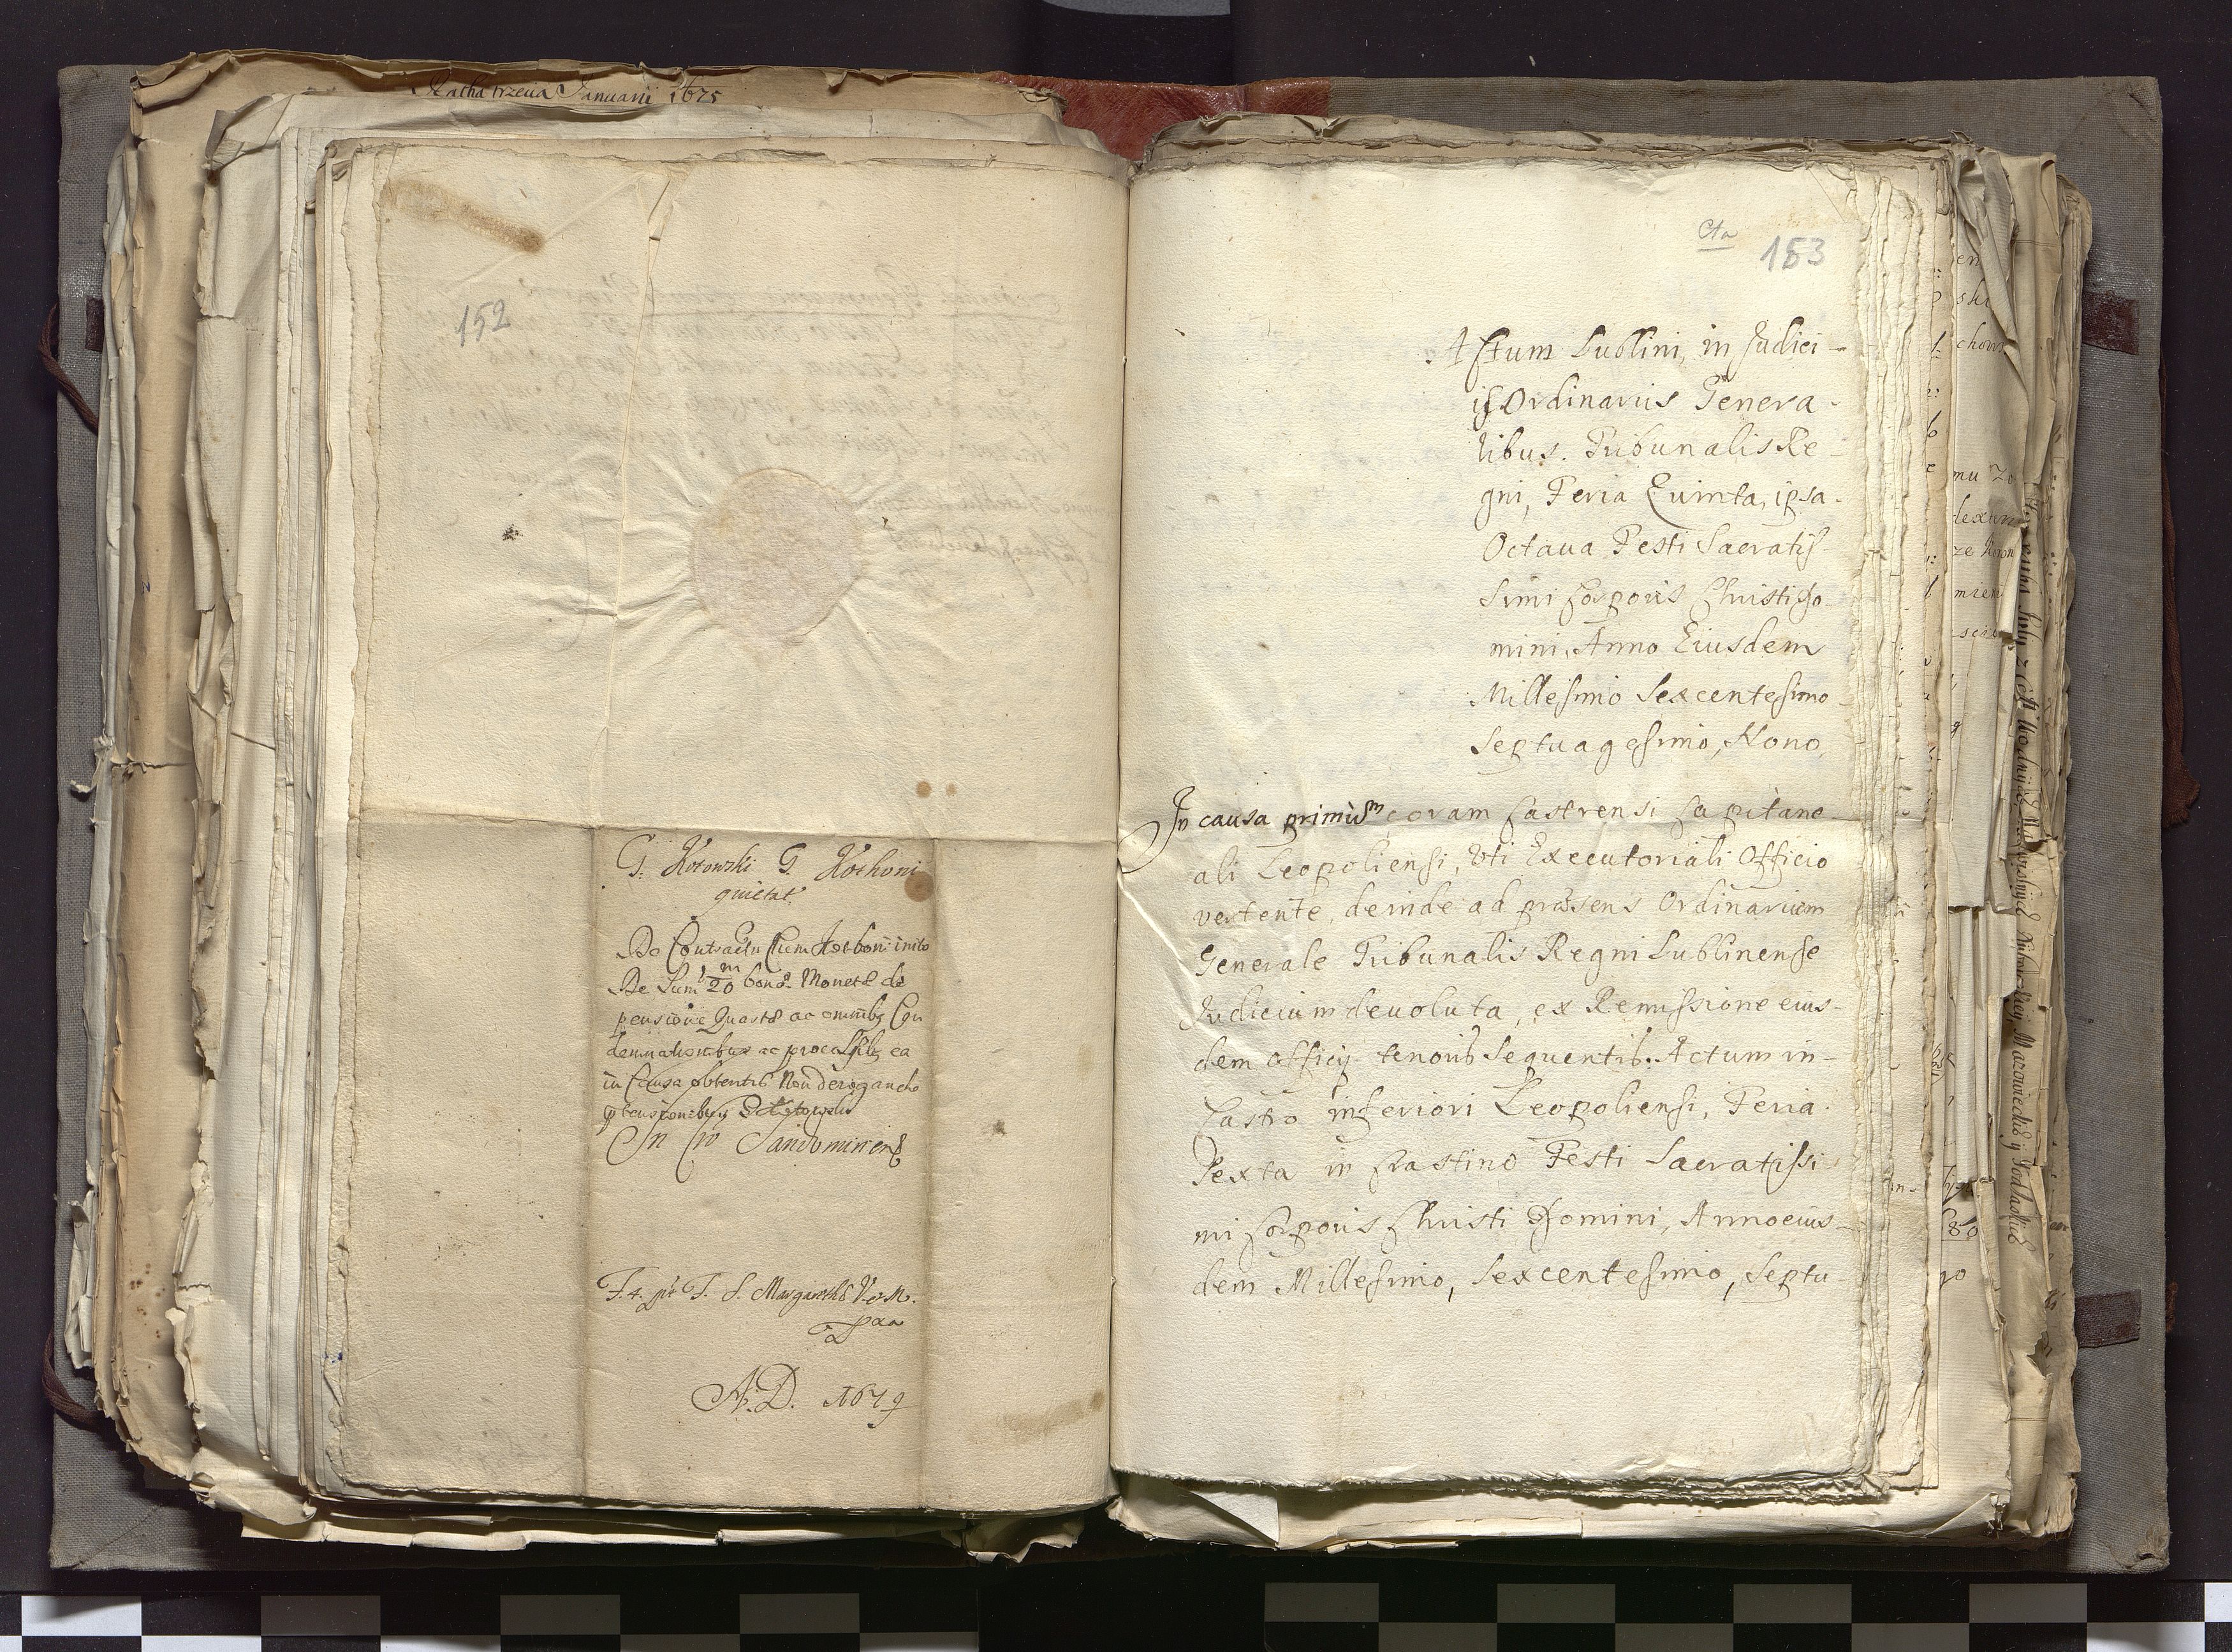 Ratha trzecia Januarii 1675
152
G. Kotowski G. Hothoni
quietat
De Contractu cum Hothoni inito
De Sum 20 m bonæ Monetæ de
pensione Quartæ ac omnibq Con
demnationibus ac processibq ea
in Causa obtentis Non derogando
ptensionibus G Kotowski
In Cro Sandomirien
F. 4. pt F. S. Margarethæ V. et M.
pxa
A. D. 1679
Cta
153
Actum Lublini, in Judici-
ijs Ordinarijs Genera-
libus. Tribunalis Re-
gni, Feria Quinta, ipsa.
Octaua Festi Sacratis-
simi Corporis Christi Do-
mini, Anno Eiusdem
Millesimo Sexcentesimo
Septuagesimo, Nono,
In causa primum coram Castrensi Capitane-
ali Leopoliensi, Vti Executoriali Officio
vertente, deinde ad præsens Ordinarium
Generale Tribunalis Regni Lublinense
Judicium deuoluta, ex Remissione eius-
dem officij tenoris sequentis. Actum in-
Castro inferiori Leopoliensi, Feria.
Sexta in Crastino Festi Sacratissi-
mi Corporis Christi Domini, Anno eius-
dem Millesimo, Sexcentesimo, Septu-